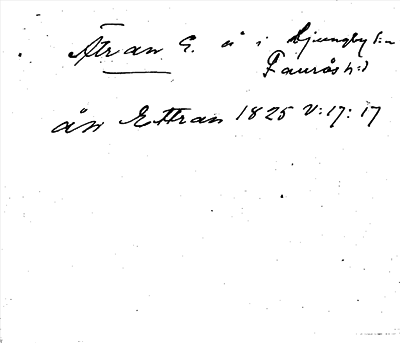 Ätran G. å i Ljungby s:n
Faurås h:d
ån Ettran 1825 V:17:17